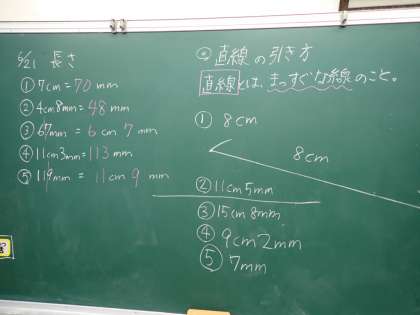 6/21 長さ
①7cm=70mm
②4cm8mm=48mm
③67mm=6cm 7mm
④11cm3mm=113mm
⑤119mm=11cm9mm
◎直線の引き方
直線とは、まっすぐな線のこと。
①8cm
8cm
②11cm5mm
③15cm8mm
④9cm2mm
⑤7mm